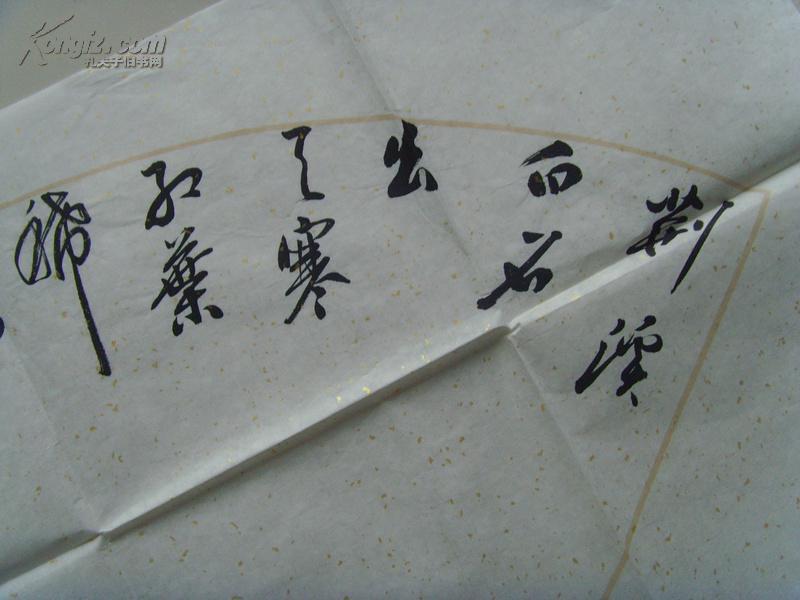 荆溪
白石
出
天寒
红葉
稀
Kongfz.com
孔夫子旧书网